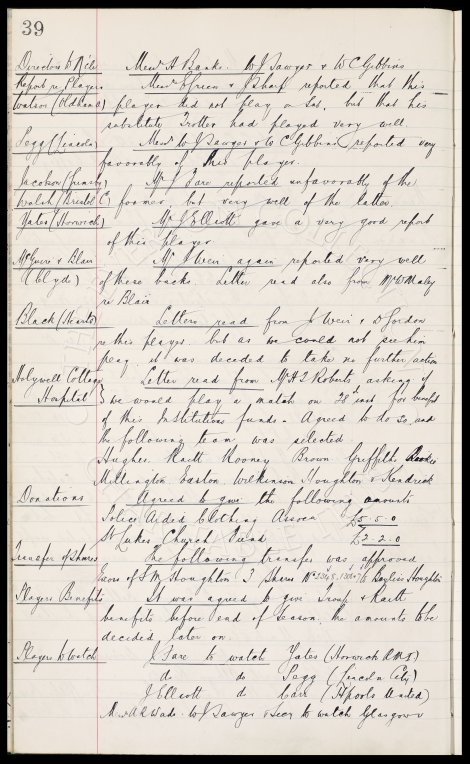 39
Directors to Messrs H Banks. W J Sawyer & W C Gibbins
Report re Players Messrs E Green & J Sharp reported that this
Watson (Oldham A) player did not play on Sat. but that his
substitute Trotter had played very well.
Pegg (Lincoln) Messrs W J Sawyer & W C Gibbins reported very
favorably of this player.
Jacobson (Grimsby) Mr J Fare reported unfavorably of the
Walsh (Bristol C) former, but very well of the latter
Yates (Norwich) Mr J Elliott gave a very good report
of this player
McGuire & Blair Mr J Weir again reported very well
(Clyde) of these backs. Letter read also from Mr W Maley
re Blair
Black (Hearts) Letters read from J Weir & D Gordon
re this player. but as we could not see him
play it was decided to take no further action
Holywell Cottage Letter read from Mr H L Roberts asking if
Hospital we would play a match on 28th inst for benefit
of this Institutions funds - Agreed to do so, and
the following team was selected
Hughes Raitt Rooney Brown Griffiths
Millington Easton Wilkinson Houghton & Kendrick
Donations Agreed to give the following amounts
Police Aided Clothing Assocn £5-5-0
St Lukes Church Fund £2-2-0
Transfer of Shares The following transfer was approved
Exors of S M Houghton 3 Shares to Houghton
Players Benefits It was agreed to give Troup & Raitt
benefits before end of season, the amounts to be
decided later on.
Players to Watch J Fare to watch Yates (Norwich
do do Pegg (Lincoln City)
J Elliott do Carr (Hpools United)
Mr A R Wade. W J Sawyer & Secy to watch Glasgow v